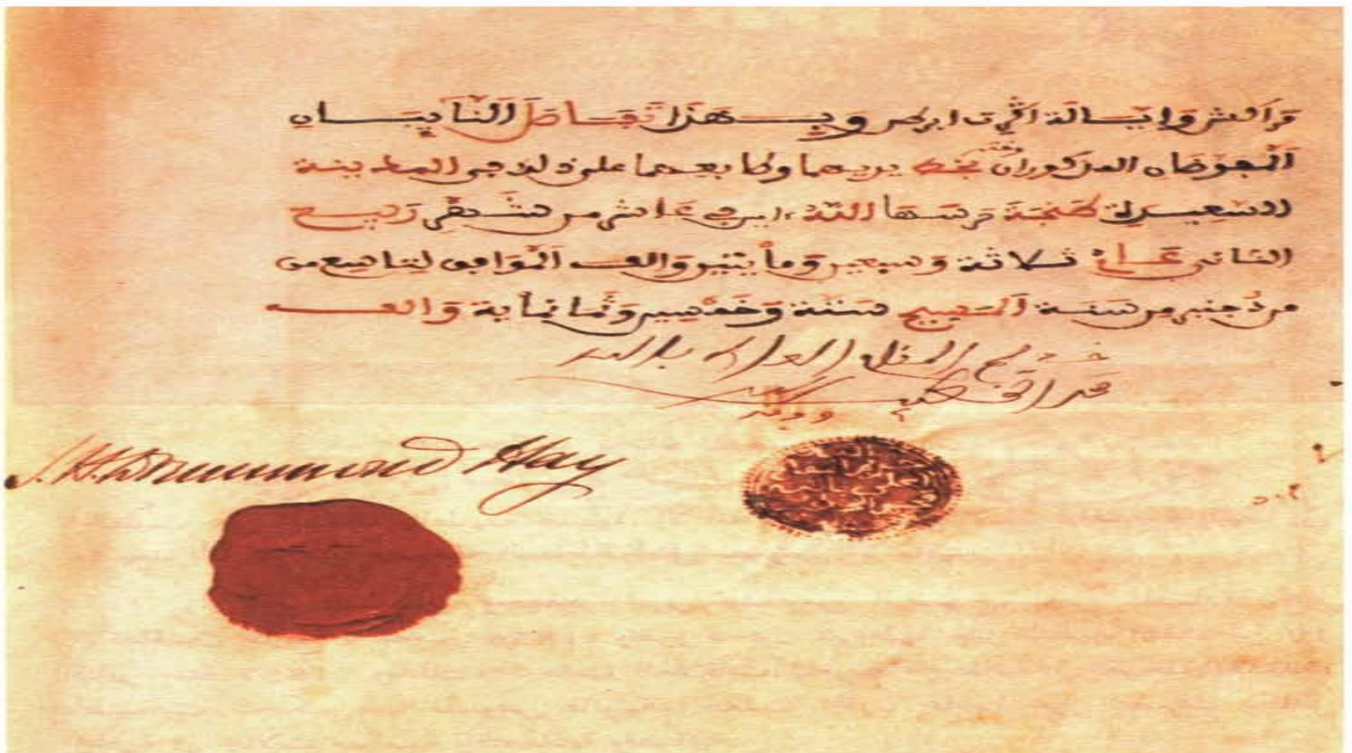 مراكش وايالة اكرت ابركر وبهذا تفاصل النايبان
المفوضان المذكوران بخط يديهما وطابعهما على ذلك في المدينة
السعيدة طنجة حرسها الله في عاشر من شهر ربيع
الثاني عام ثلاثة وسبعين ومأيتين والف الموافق لتاسع من
من دجنبر من سنة المسيح ستة وخمسين وثمانماية والف
خديم المقام العالي بالله
محمد الخطيب
وفقه الله
J. H. Drummond Hay